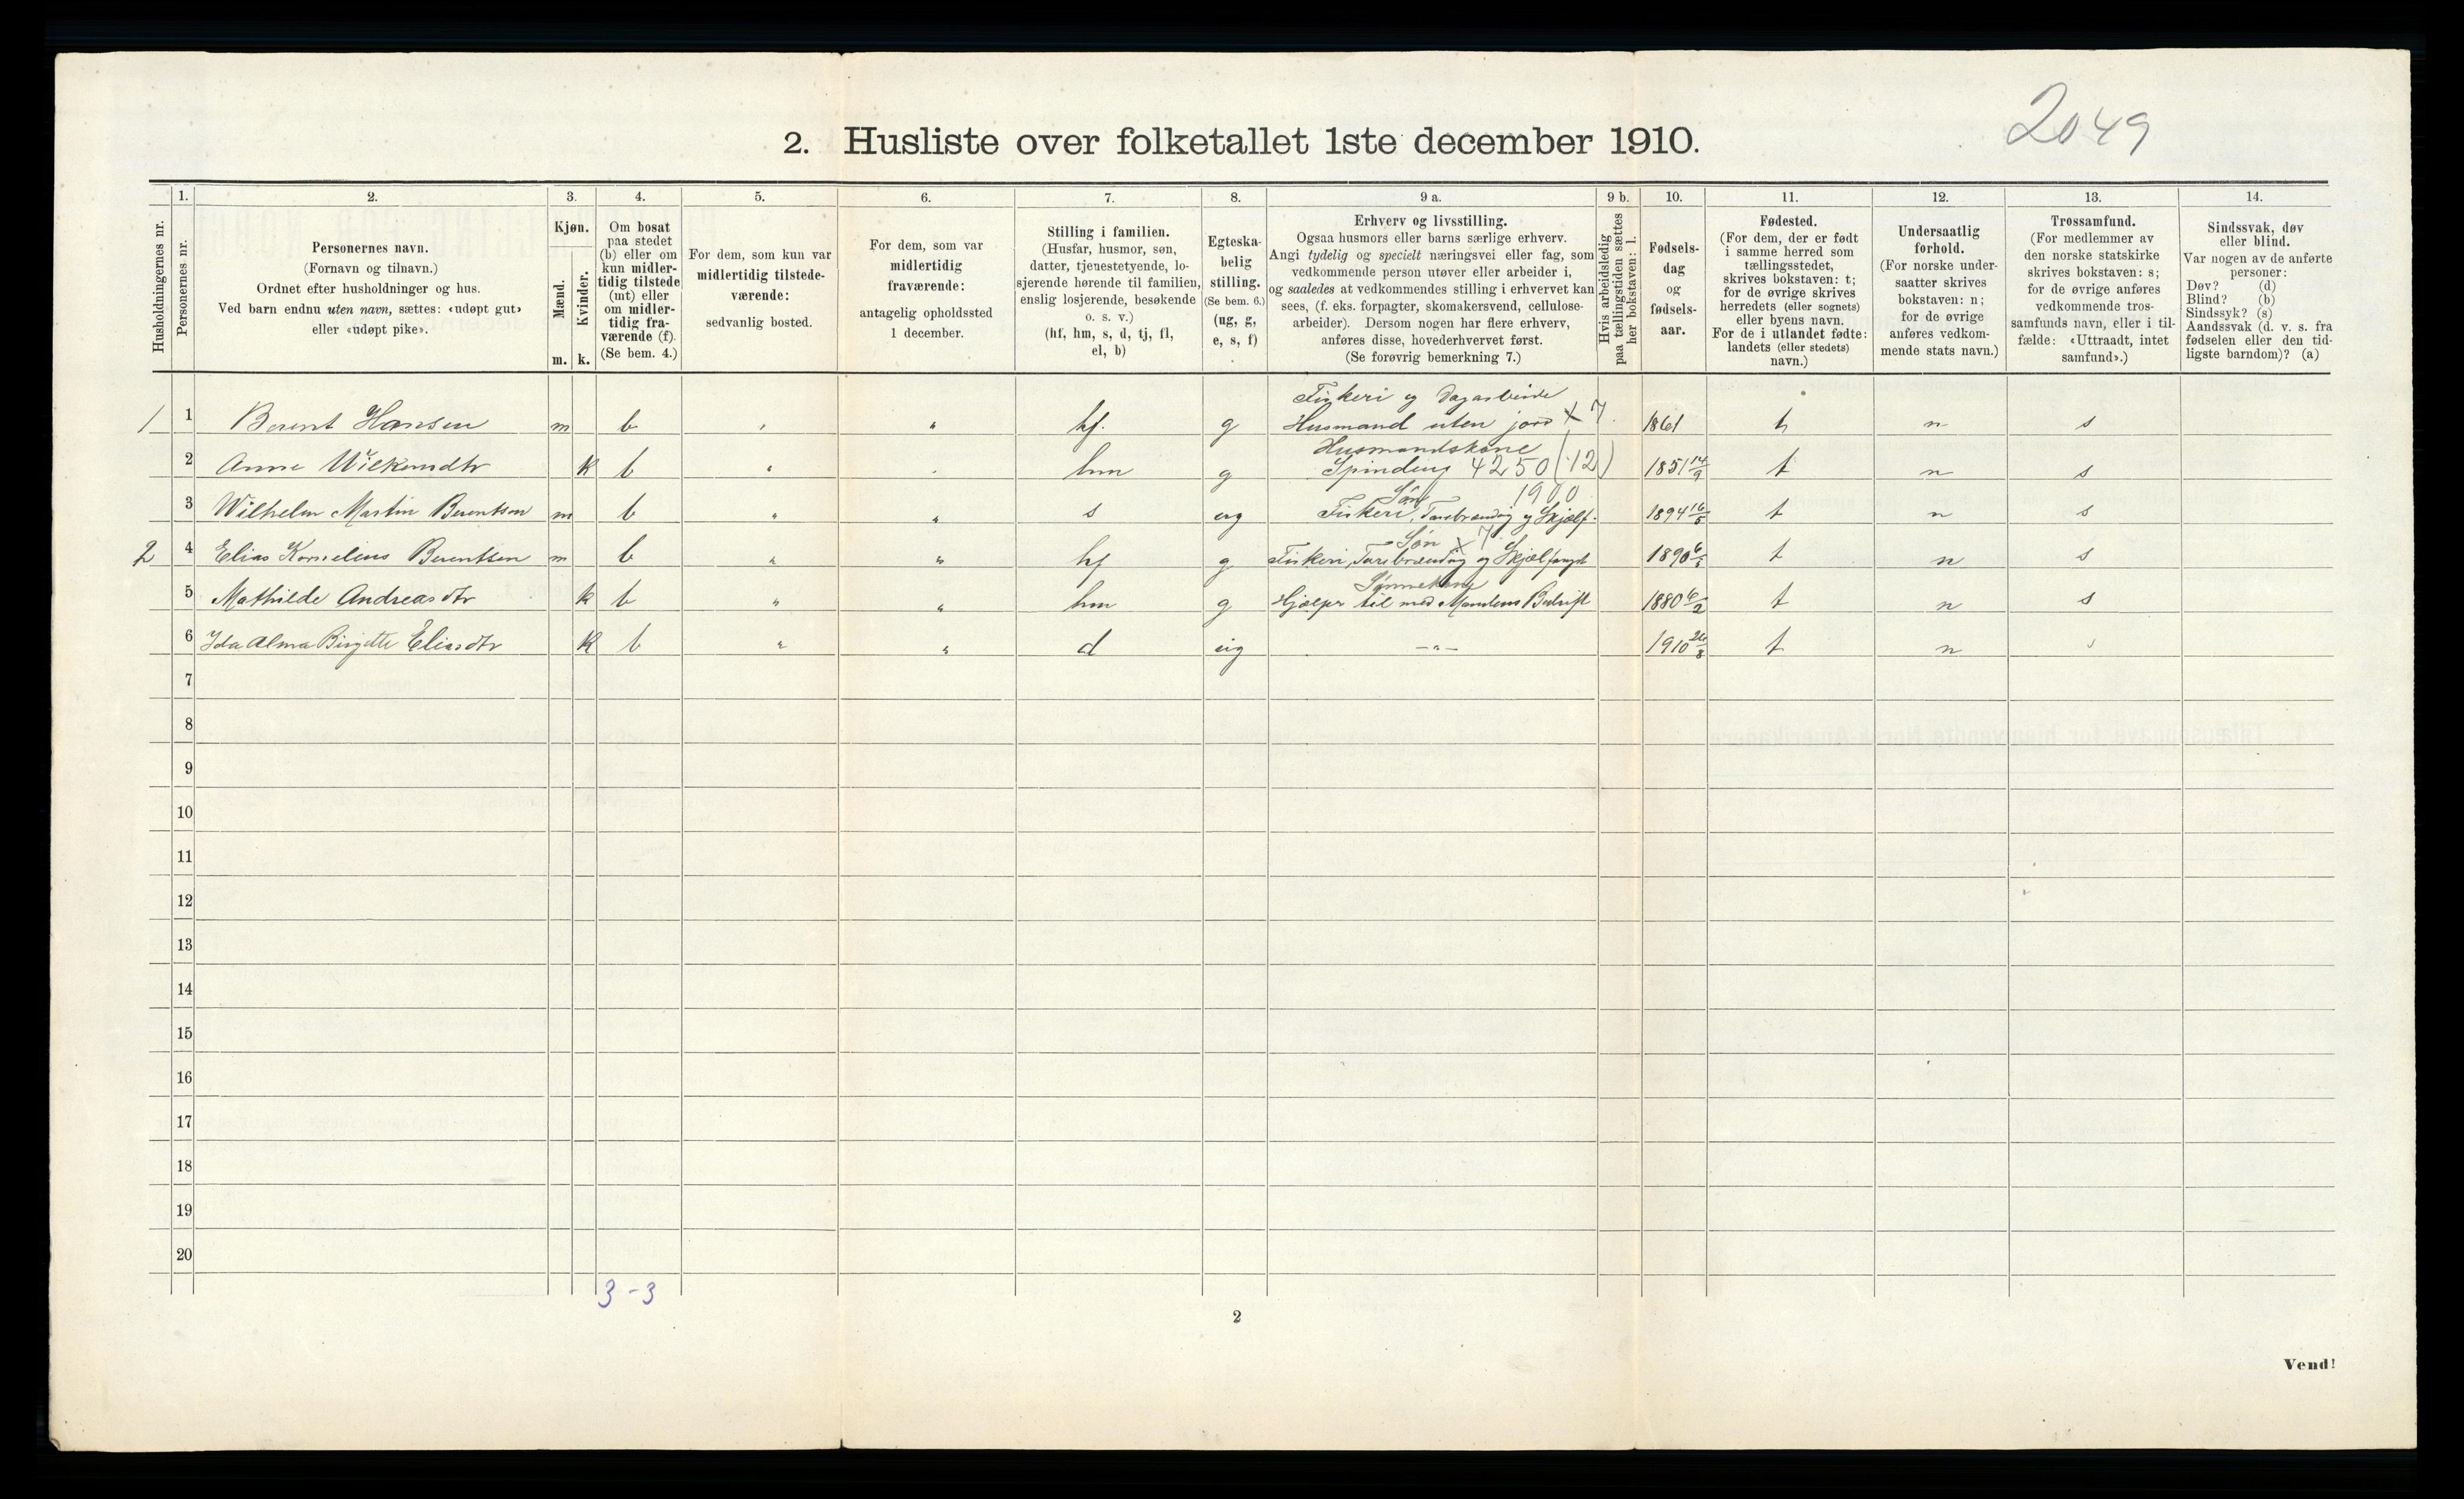 2049
2. Husliste over folketallet 1ste december 1910.
Husholdningernes nr.
1.
Personernes nr.
2.
Personernes navn.
(Fornavn og tilnavn.)
Ordnet efter husholdninger og hus.
Ved barn endnu uten navn, sættes: «udøpt gut»
eller «udøpt pike».
3.
Kjøn.
Mænd.
m.
Kvinder.
k.
4.
Om bosat
paa stedet
(b) eller om
kun midler-
tidig tilstede
(mt) eller
om midler-
tidig fra-
værende (f).
(Se bem. 4.)
5.
For dem, som kun var
midlertidig tilstede-
værende:
sedvanlig bosted.
6.
For dem, som var
midlertidig
fraværende:
antagelig opholdssted
1 december.
7.
Stilling i familien.
(Husfar, husmor, søn,
datter, tjenestetyende, lo-
sjerende hørende til familien,
enslig losjerende, besøkende
o. s. v.)
(hf, hm, s, d, tj, fl,
el, b)
8.
Egteska-
belig
stilling.
(Se bem. 6.)
(ug, g,
e, s, f)
9 a.
Erhverv og livsstilling.
Ogsaa husmors eller barns særlige erhverv.
Angi tydelig og specielt næringsvei eller fag, som
vedkommende person utøver eller arbeider i,
og saaledes at vedkommendes stilling i erhvervet kan
sees, (f. eks. forpagter, skomakersvend, cellulose-
arbeider). Dersom nogen har flere erhverv,
anføres disse, hovederhvervet først.
(Se forøvrig bemerkning 7.)
9 b.
Hvis arbeidsledig
paa tællingstiden sættes
her bokstaven: l.
10.
Fødsels-
dag
og
fødsels-
aar.
11.
Fødested.
(For dem, der er født
i samme herred som
tællingsstedet,
skrives bokstaven: t;
for de øvrige skrives
herredets (eller sognets)
eller byens navn.
For de i utlandet fødte:
landets (eller stedets)
navn.)
12.
Undersaatlig
forhold.
(For norske under-
saatter skrives
bokstaven: n;
for de øvrige
anføres vedkom-
mende stats navn.)
13.
Trossamfund.
(For medlemmer av
den norske statskirke
skrives bokstaven: s;
for de øvrige anføres
vedkommende tros-
samfunds navn, eller i til-
fælde: «Uttraadt, intet
samfund».)
14.
Sindssvak, døv
eller blind.
Var nogen av de anførte
personer:
Døv? (d)
Blind? (b)
Sindssyk? (s)
Aandssvak (d. v. s. fra
fødselen eller den tid-
ligste barndom)? (a)
Fiskeri og Dagarbeide
1 1 Berent Hansen m b " " hf. g Husmand uten jord x 7. 1861 t n s
Husmandskone
2 Anne Wilkensdtr k b " " hm g Spinding 4250 (12) 1851 14/9 t n s
Søn 1900
3 Wilhelm Martin Berentsen m b " " s ug Fiskeri, Tarebrænding og Skjælf. 1894 16/5 t n s
Søn x 7
2 4 Elias Kornelius Berentsen m b " " hf g Fiskeri, Tarebrænding og Skjælfangst 1890 t n s
Sønnekone
5 Mathilde Andreasdtr k b " " hm g Hjælper til med Mandens Bedrift 1880 6/2 t n s
6 Ida Alma Birgitte Eliasdtr k b " " d ug —"— 1910 26/8 t n s
7
8
9
10
11
12
13
14
15
16
17
18
19
20
3 - 3
2
Vend!